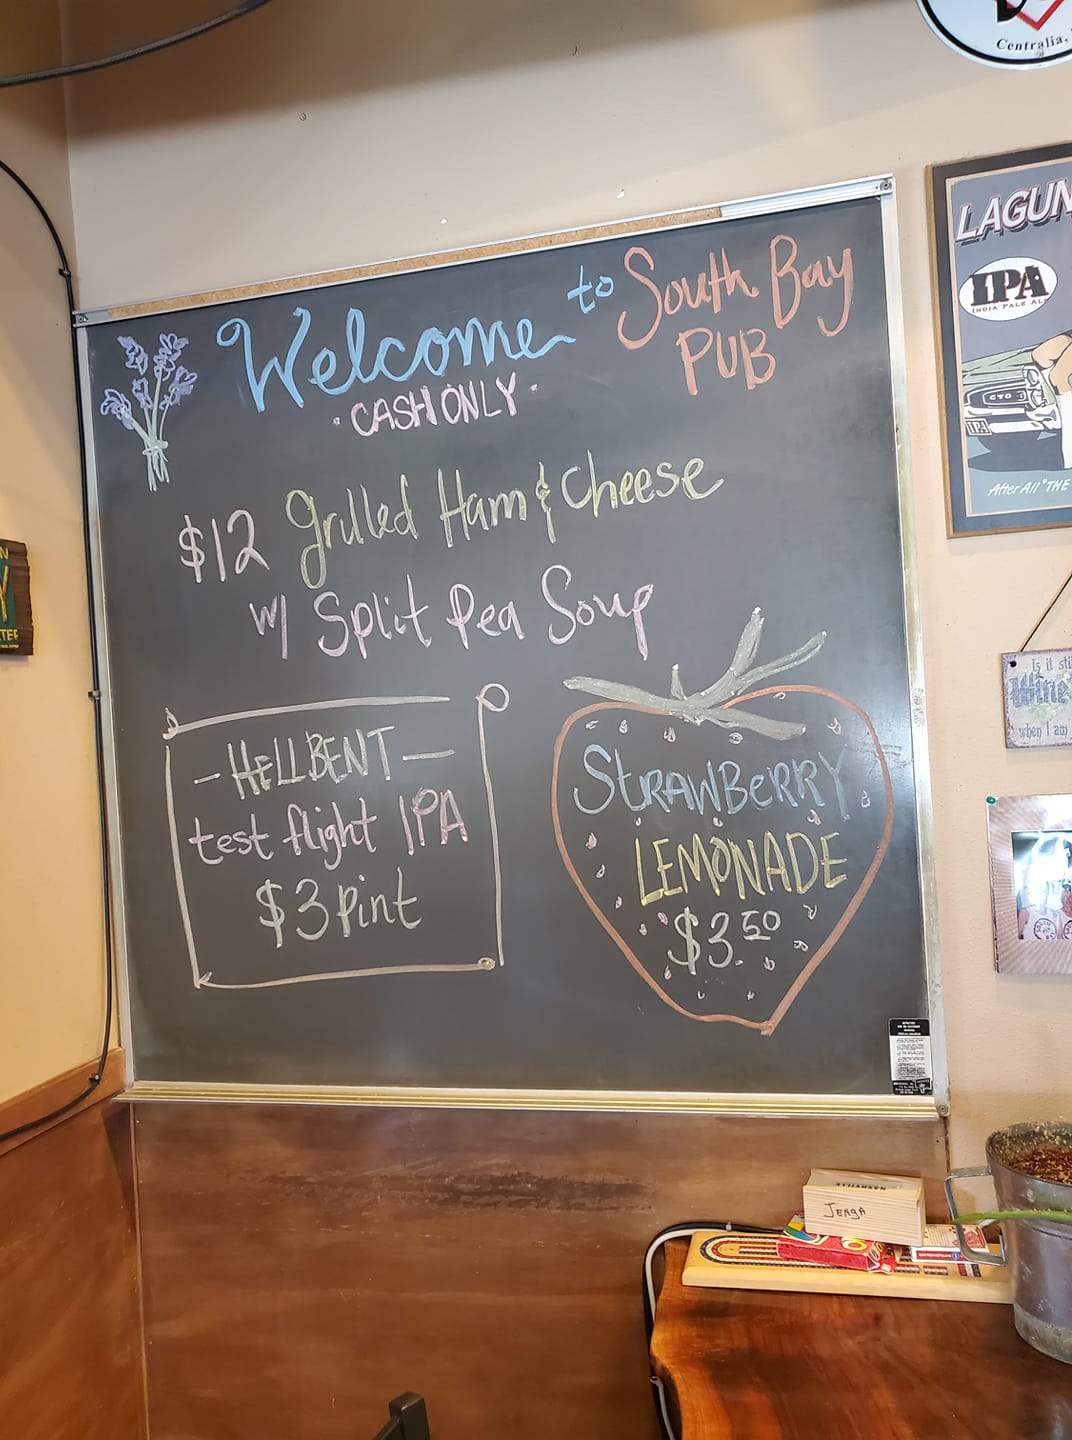 Welcome to South Bay
PUB
· CASH ONLY ·
$12 Grilled Ham & Cheese
w/ Split Pea Soup
- HELLBENT -
test flight IPA
$3 Pint
STRAWBERRY
LEMONADE
$3.50
Centralia,
LAGUN
IPA
INDIA PALE AL
GTO
IPA
After All "THE
Is it sti
Wine
when I am
JENGA